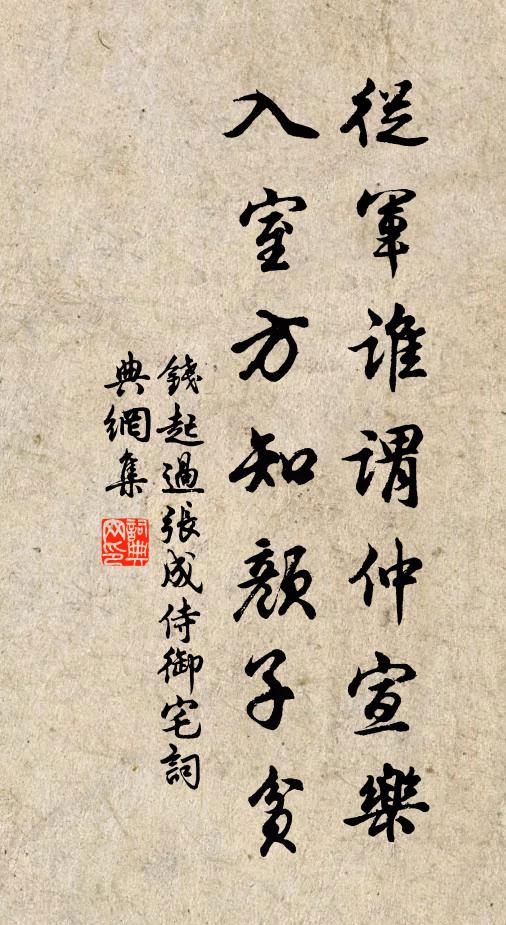 從軍誰謂仲宣樂
入室方知顏子貧
錢起過張成侍御宅詞
典網集
詞典網印